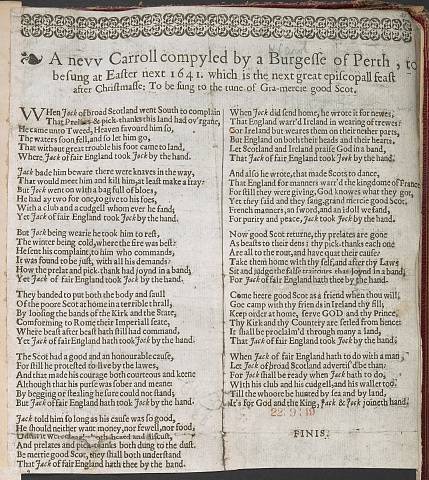 A nevv Carroll compyled by a Burgesse of Perth, to
be sung at Easter next 1641. which is the next great episcopall feast
after Christmasse; To be sung to the tune of Gra-mercie good Scot.
WHen Jack of broad Scotland went South to complain
That Prelats & pick-thanks this land had ov'rgane,
He came unto Tweed, Heaven favourd him so,
Thy waters soon fell, and so let him go,
That without great trouble his foot came to land,
Where Jack of fair England took Jock by the hand.
Jack bade him beware there were knaves in the way,
That would meet him and kill him, at least make a fray:
But Jock went on with a bag full of blows
He had ay two for one, to give to his foes,
With a club and a cudgell whom ever he fand;
Yet Jack of fair England took Jock by the hand.
But Jock being wearie he took him to rest,
The winter being cold, where the fire was best:
He sent his complaint, to him who commands,
It was found to be just, with all his demands
How the prelat and pick-thank had joynd in a band,
Yet Jack of fair England took Jock by the hand.
They banded to put both the body and saull
Of the poore Scot at home in a terrible thrall,
By loosing the bands of the Kirk and the State,
Comforming to Rome their Imperiall seate,
Where beast after beast hath still had command,
Yet Jack of fair England hath took Jock by the hand.
The Scot had a good and an honourable cause,
For still he protested to live by the lawes,
And that made his courage both courteous and keene
Although that his purse was sober and meane:
By begging or stealing he sure could not stand;
But Jack of fair England hath took Jock by the hand.
Jack told him so long as his cause was so good,
He should neither want money, nor fewell, nor food,
And prelates and pick-thanks both dung to the dust.
Be merrie good Scot, they shall both understand
That Jack of fair England hath thee by the hand.
When Jack did send home, he wrote it for newes:
That England war'd Ireland in wearing of trewes:
For Ireland but weares them on their nether parts,
But England on both their heads and their hearts.
Let Scotland and Ireland praise God in a band,
That Jack of fair England took Jock by the hand.
And also he wrote, that made Scots to dance,
That England for manners warr'd the kingdome of France
For still they were giving, God knowes what they got,
Yet they said and they sang, grand mercie good Scot,
French manners, an sword, and an idoll we fand,
For purity and peace, Jack took Jock by the hand.
Now good Scot returne, thy prelats are gone
As beasts to their dens; thy pick-thanks each one
Are all to the rout, and have quat their cause:
Take them home with thy self, and after thy Laws
Sit and judge the false traitours that joynd in a band;
For Jack of fair England hath thee by the hand.
Come heere good Scot as a friend when thou will,
Goe camp with thy friends in Ireland thy fill,
Keep order at home, serve GOD and thy Prince,
Thy Kirk and thy Countrey are setled from hence:
It shall be proclaim'd through many a land,
That Jack of fair England took Jock by the hand.
When Jack of fair England hath to do with a man
Let Jock of broad Scotland advertis'd be than:
For Jock shall be ready when Jack hath to do,
With his club and his cudgell, and his wallet too.
Till the whoore be hunted by sea and by land,
It's for God and the King, Jack & Jock joineth hand.
FINIS.